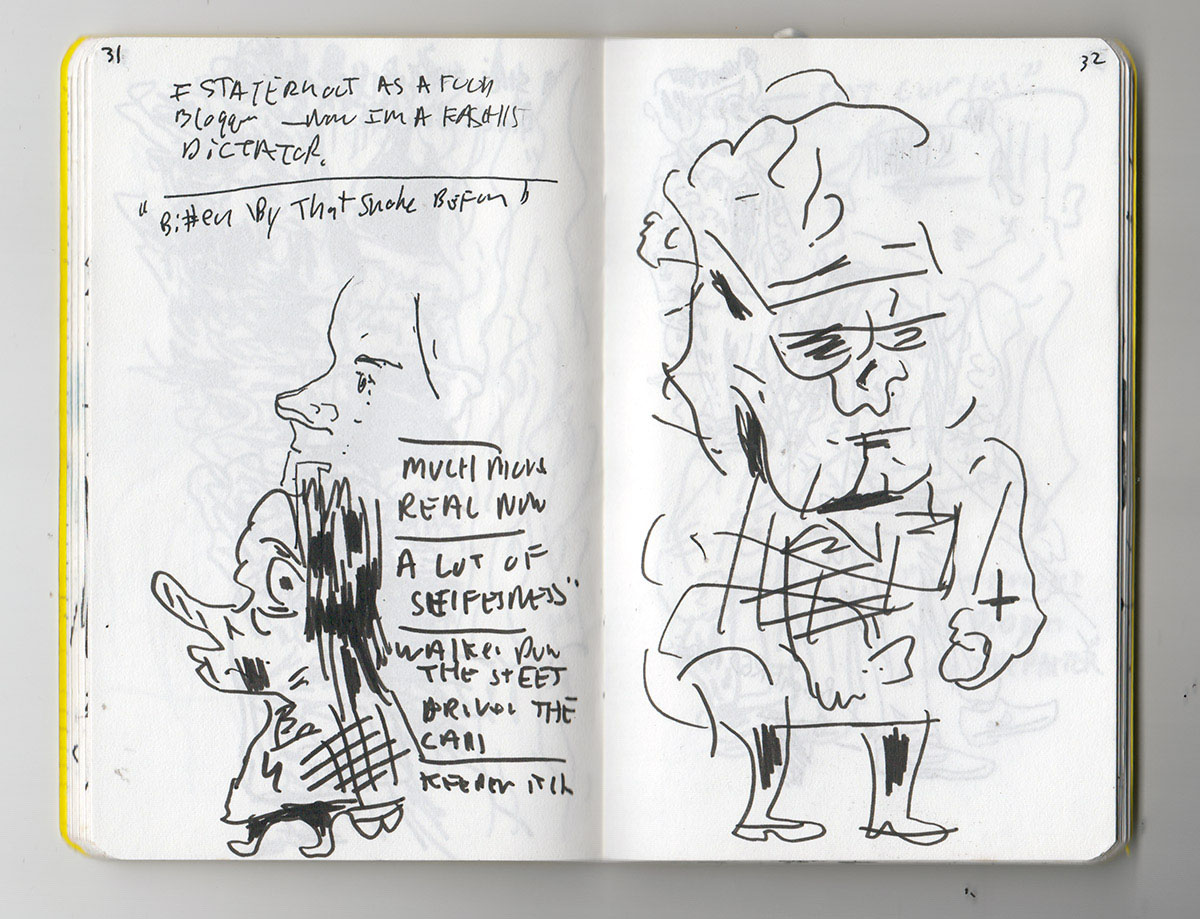 31
I STATERMOUT AS A FOOD
Blogger — NOW I'M A FASHIST
DICTATOR.
"Bitten By That Snake Before"
MUCH MORE
REAL NOW
A LOT OF
WALKE DOWN
THE STEET
DRIVE THE
CARI
32